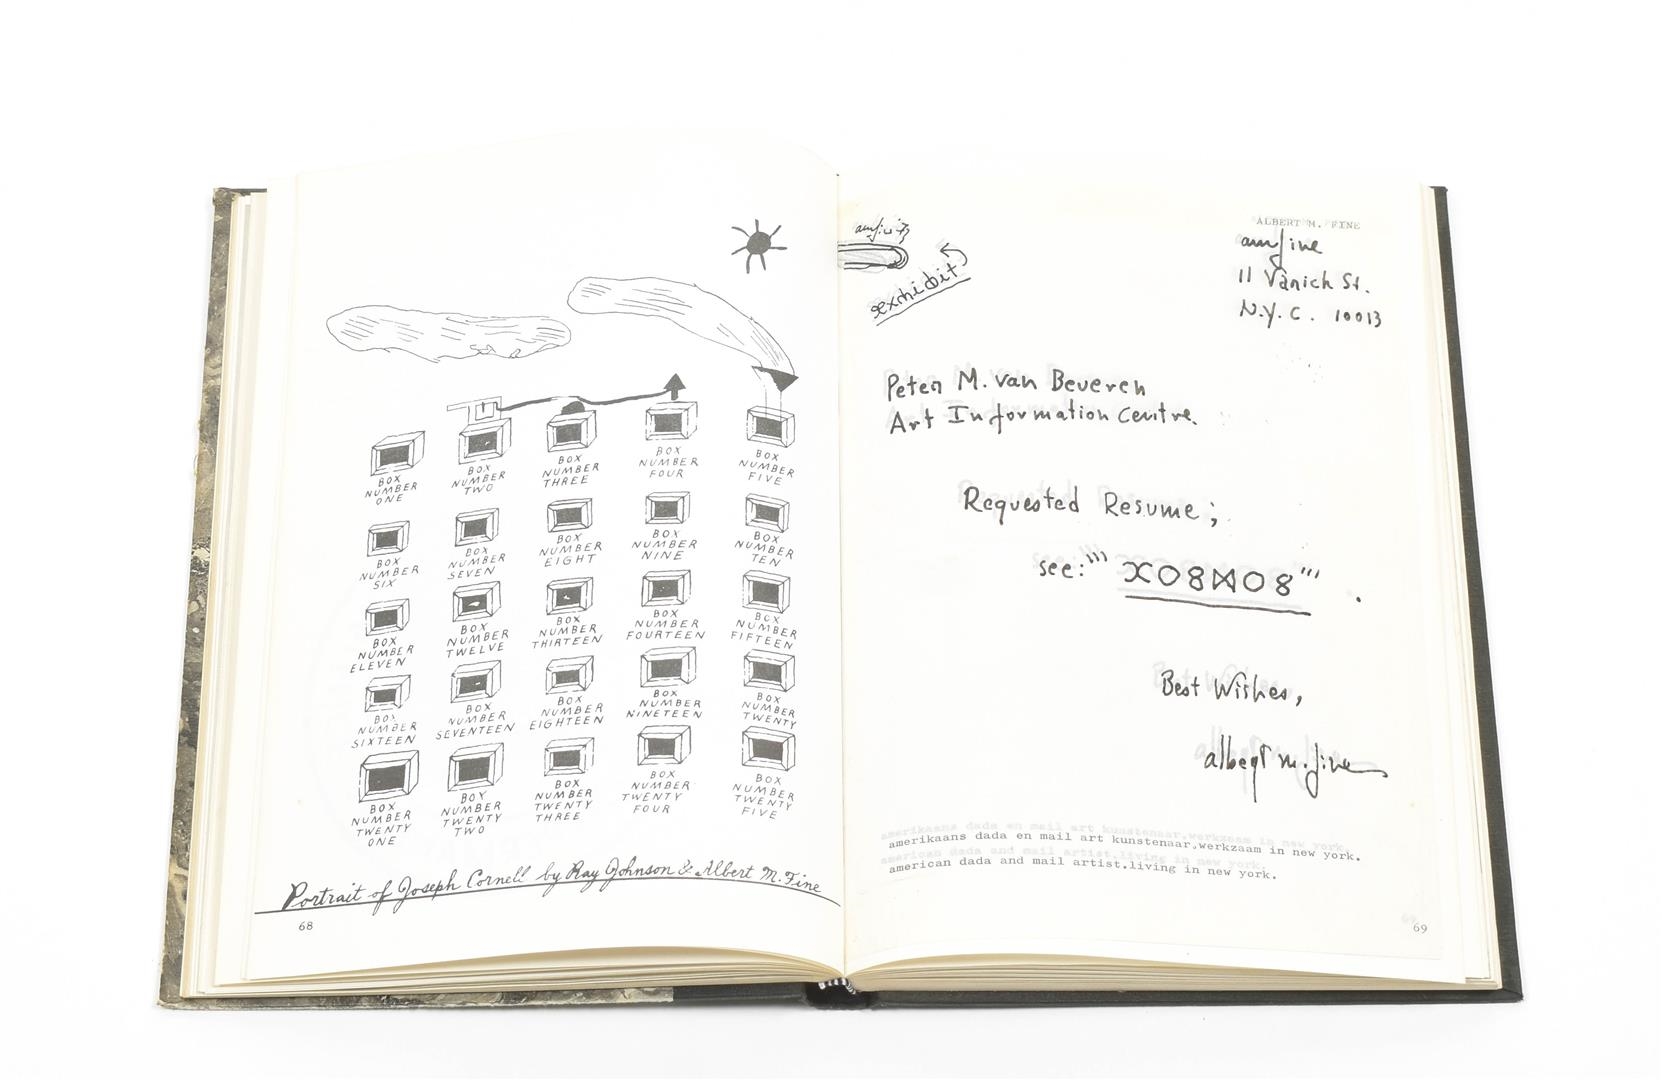 BOX
NUMBER
ONE
BOX
NUMBER
TWO
BOX
NUMBER
THREE
BOX
NUMBER
FOUR
BOX
NUMBER
FIVE
BOX
NUMBER
SIX
BOX
NUMBER
SEVEN
BOX
NUMBER
EIGHT
BOX
NUMBER
NINE
BOX
NUMBER
TEN
BOX
NUMBER
ELEVEN
BOX
NUMBER
TWELVE
BOX
NUMBER
THIRTEEN
BOX
NUMBER
FOURTEEN
BOX
NUMBER
FIFTEEN
BOX
NUMBER
SIXTEEN
BOX
NUMBER
SEVENTEEN
BOX
NUMBER
EIGHTEEN
BOX
NUMBER
NINETEEN
BOX
NUMBER
TWENTY
BOX
NUMBER
TWENTY
ONE
BOX
NUMBER
TWENTY
TWO
BOX
NUMBER
TWENTY
THREE
BOX
NUMBER
TWENTY
FOUR
BOX
NUMBER
TWENTY
FIVE
Portrait of Joseph Cornell by Ray Johnson & Albert M. Fine
68
ALBERT M. FINE
amfine
11 Varick St.
N.Y.C. 10013
Peter M. van Beveren
Art Information Centre.
Requested Resume;
see:
Best Wishes,
albert m. fine
amerikaans dada en mail art kunstenaar,werkzaam in new york.
american dada and mail artist.living in new york.
69